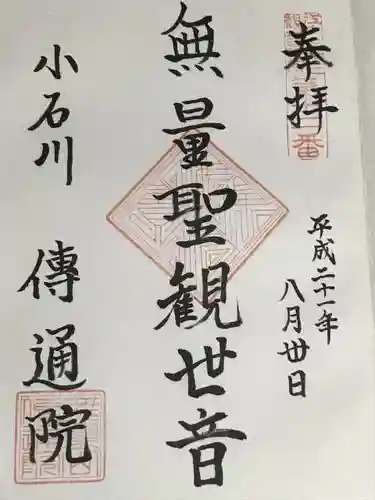 奉拝
平成二十一年
八月卅日
無量聖観世音
小石川 傳通院